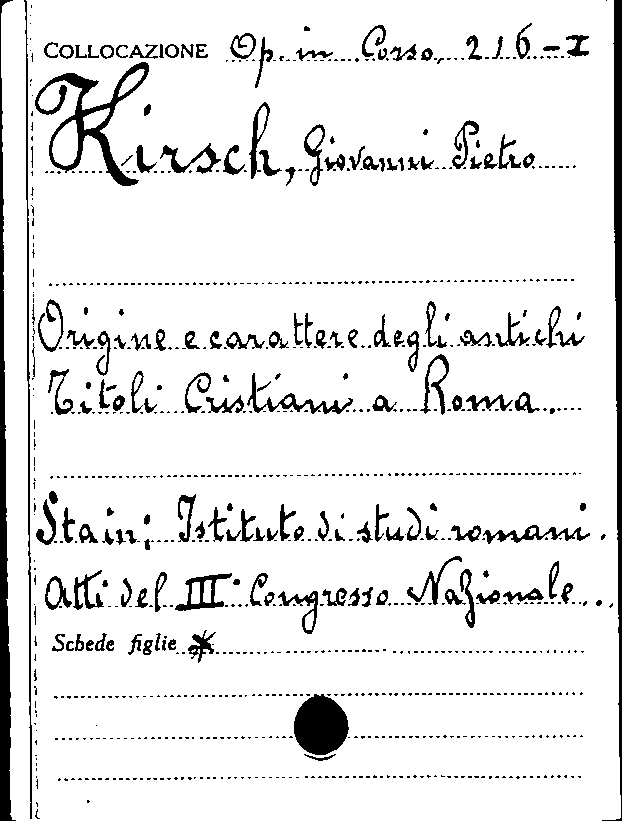 COLLOCAZIONE Op. in Corso, 216-I
Kirsch, Giovanni Pietro
Origine e carattere degli antichi
Titoli Cristiani a Roma.
Sta in: Istituto di studi romani.
Atti del III° Congresso Nazionale...
Schede figlie *